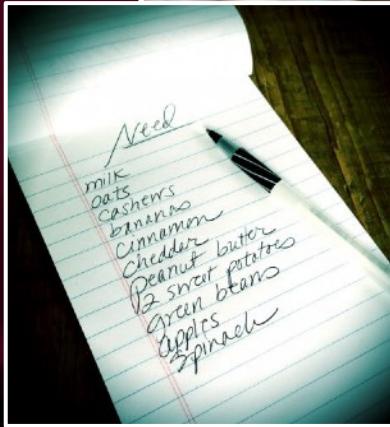 Need
milk
oats
cashews
bananas
cinnamon
cheddar
Peanut butter
12 sweet potatoes
green beans
apples
Spinach